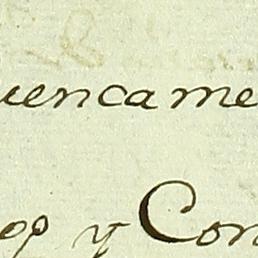 uencame
op y Con